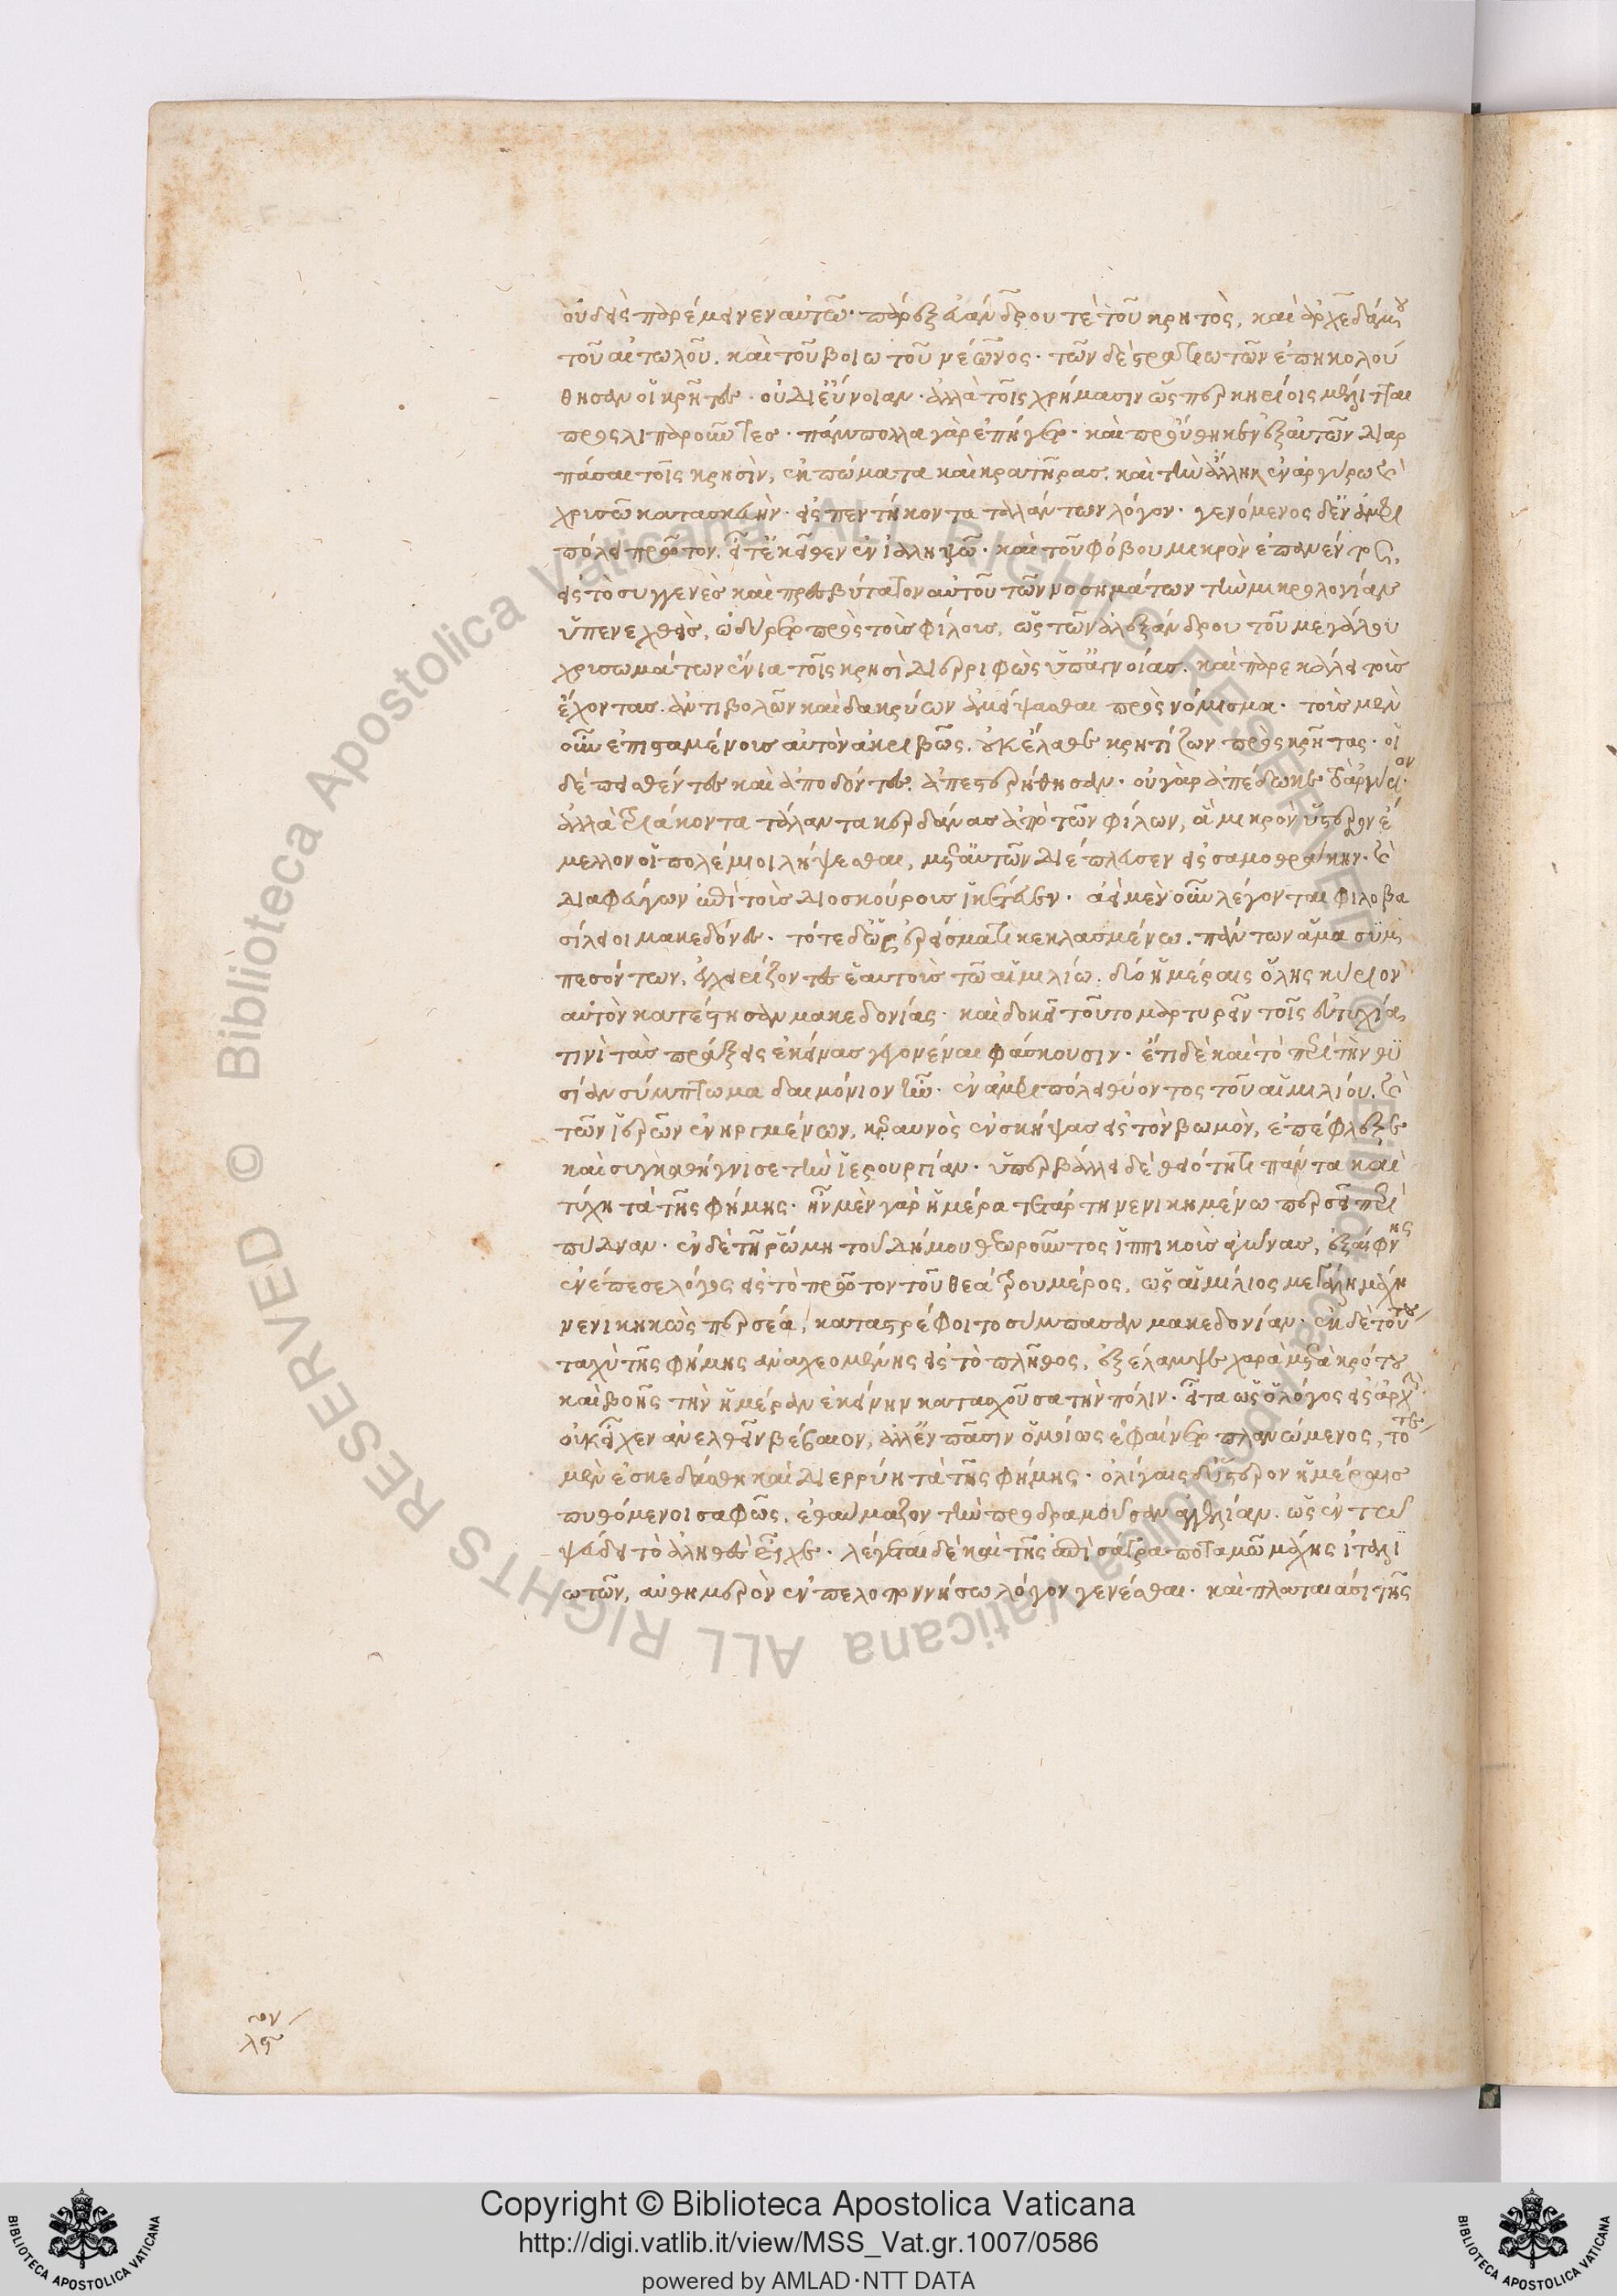 οὐδεὶς παρέμεινεν αὐτῶ· πάρεξ εὐάνδρου τὲ τοῦ κρητὸς, καὶ ἀρχεδάμου
τοῦ αἰτωλοῦ. καὶ τοῦ βοιωτοῦ νέωνος· τῶν δὲ στρατιωτῶν ἐπηκολού
θησαν οἱ κρῆτες· οὐ δι' εὔνοιαν· ἀλλὰ τοῖς χρήμασιν ὥσπερ κηρίοις μέλιτται
προσλιπαροῦντες· πάνυ πολλα γὰρ ἐπήγετο· καὶ προύθηκεν ἐξ αὐτῶν διαρ
πάσαι τοῖς κρησὶν, ἐκπώματα καὶ κρατῆρας. καὶ τὴν ἄλλην ἐν ἀργύρω καὶ
χρυσῶ κατασκευήν· εἰς πεντήκοντα ταλάντων λόγον· γενόμενος δ' ἐν ἀμφι
πόλει πρῶτον. εἶτ' ἐκεῖθεν ἐν γαληψῶ· καὶ τοῦ φόβου μικρὸν ἐπανέντος,
εἰς τὸ συγγενὲς καὶ πρεσβύτατον αὐτοῦ τῶν νοσημάτων τὴν μικρολογίαν
ὑπενεχθεὶς, ὠδύρετο πρὸς τοὺς φίλους, ὡς τῶν ἀλεξάνδρου τοῦ μεγάλου
χρυσωμάτων ἔνια τοῖς κρησὶ διερριφὼς ὑπ' ἀγνοίας. καὶ παρεκάλει τοὺς
ἔχοντας. ἀντιβολῶν καὶ δακρύων ἀμείψασθαι πρὸς νόμισμα· τοὺς μὲν
οὖν ἐπισταμένους αὐτὸν ἀκριβῶς. οὐκ ἔλαθε κρητίζων πρὸς κρῆτας· οἱ
δὲ πεισθέντες καὶ ἀποδόντες. ἀπεστερήθησαν· οὐ γὰρ ἀπέδωκε τἀργύριον·
ἀλλὰ τριάκοντα τάλαντα κερδάνας ἀπὸ τῶν φίλων, ἃ μικρὸν ὕστερον ἔ
μελλον οἱ πολέμιοι λήψεσθαι, μετ' αὐτῶν διέπλευσεν εἰς σαμοθράκην· καὶ
διαφεύγων ἐπὶ τοὺς διοσκούρους ἱκέτευεν· ἀεὶ μὲν οὖν λέγονται φιλοβα
σίλειοι μακεδόνες· τότε δ' ὡς ἐρείσματι κεκλασμένω. πάντων ἅμα συμ
πεσόντων, ἐγχειρίζοντες ἑαυτοὺς τῶ αἰμιλίω. δύο ἡμέραις ὅλης κύριον
αὐτὸν κατέστησαν μακεδονίας· καὶ δοκεῖ τοῦτο μαρτυρεῖν τοῖς εὐτυχία
τινὶ τὰς πράξεις ἐκείνας γεγονέναι φάσκουσιν· ἔτι δὲ καὶ τὸ περὶ τὴν θυ
σίαν σύμπτωμα δαιμόνιον ἦν· ἐν ἀμφιπόλει θύοντος τοῦ αἰμιλίου. καὶ
τῶν ἱερῶν ἐνηργμένων, κεραυνὸς ἐνσκήψας εἰς τὸν βωμὸν, ἐπέφλεξε
καὶ συγκαθήγνισε τὴν ἱερουργίαν· ὑπερβάλλει δὲ θειότητι πάντα καὶ
τύχη τὰ τῆς φήμης· ἦν μὲν γὰρ ἡμέρα τετάρτη νενικημένω περσεῖ περὶ
πύδναν· ἐν δὲ τῆ ῥώμη τοῦ δήμου θεωροῦντος ἱππικοὺς ἀγῶνας, ἐξαίφνης
ἐνέπεσε λόγος εἰς τὸ πρῶτον τοῦ θεάτρου μέρος, ὡς αἰμίλιος μεγάλη μάχη
νενικηκὼς περσέα, καταστρέφοιτο σύμπασαν μακεδονίαν· ἐκ δὲ τούτου
ταχὺ τῆς φήμης ἀναχεομένης εἰς τὸ πλῆθος, ἐξέλαμψε χαρὰ μετὰ κρότου
καὶ βοῆς τὴν ἡμέραν ἐκείνην κατασχοῦσα τὴν πόλιν· εἶτα ὡς ὁ λόγος εἰς ἀρχὴν
οὐκ εἶχεν ἀνελθεῖν βέβαιον, ἀλλ' ἐν πᾶσιν ὁμοίως ἐφαίνετο πλανώμενος, τότε
μὲν ἐσκεδάσθη καὶ διερρύη τὰ τῆς φήμης· ὀλίγαις δ' ὕστερον ἡμέραις
πυθόμενοι σαφῶς. ἐθαύμαζον τὴν προδραμοῦσαν ἀγγελίαν. ὡς ἐν τῶ
ψεύδει τὸ ἀληθὲς εἶχε· λέγεται δὲ καὶ τῆς ἐπὶ σάγρα ποταμῶ μάχης ἰταλι
ωτῶν, αὐθημερὸν ἐν πελοποννήσω λόγον γενέσθαι· καὶ πλαταιάσι τῆς